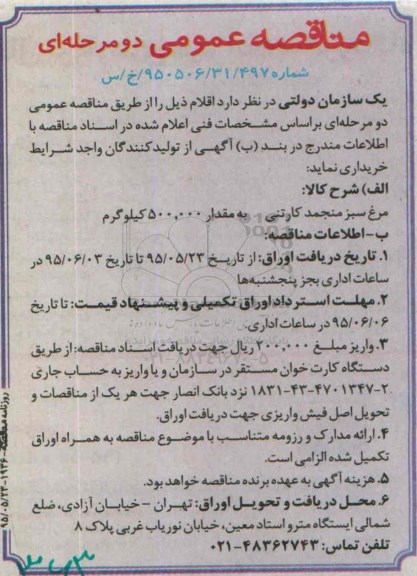 مناقصه عمومی دو مرحله‌ای
شماره ۹۵۰۵۰۶/۳۱/۴۹۷/خ/س
یک سازمان دولتی در نظر دارد اقلام ذیل را از طریق مناقصه عمومی
دو مرحله‌ای براساس مشخصات فنی اعلام شده در اسناد مناقصه با
اطلاعات مندرج در بند (ب) آگهی از تولیدکنندگان واجد شرایط
خریداری نماید:
الف) شرح کالا:
مرغ سبز منجمد کارتنی به مقدار ۵۰۰,۰۰۰ کیلوگرم
ب-اطلاعات مناقصه:
۱. تاریخ دریافت اوراق: از تاریخ ۹۵/۰۵/۲۳ تا تاریخ ۹۵/۰۶/۰۳ در
ساعات اداری بجز پنجشنبه‌ها
۲. مهلت استرداد اوراق تکمیلی و پیشنهاد قیمت: تا تاریخ
۹۵/۰۶/۰۶ در ساعات اداری.
۳. واریز مبلغ ۲۰۰,۰۰۰ ریال جهت دریافت اسناد مناقصه: از طریق
دستگاه کارت خوان مستقر در سازمان و یا واریز به حساب جاری
۱۸۳۱-۴۳-۴۷۰۱۳۴۷-۲ نزد بانک انصار جهت هر یک از مناقصات و
تحویل اصل فیش واریزی جهت دریافت اوراق.
۴. ارائه مدارک و رزومه متناسب با موضوع مناقصه به همراه اوراق
تکمیل شده الزامی است.
۵. هزینه آگهی به عهده برنده مناقصه خواهد بود.
۶. محل دریافت و تحویل اوراق: تهران - خیابان آزادی، ضلع
شمالی ایستگاه مترو استاد معین، خیابان نوریاب غربی پلاک ۸
تلفن تماس: ۴۸۳۶۲۷۴۳-۰۲۱
روزنامه مناقصه-۱۹۳۶-۹۵/۰۵/۲۳